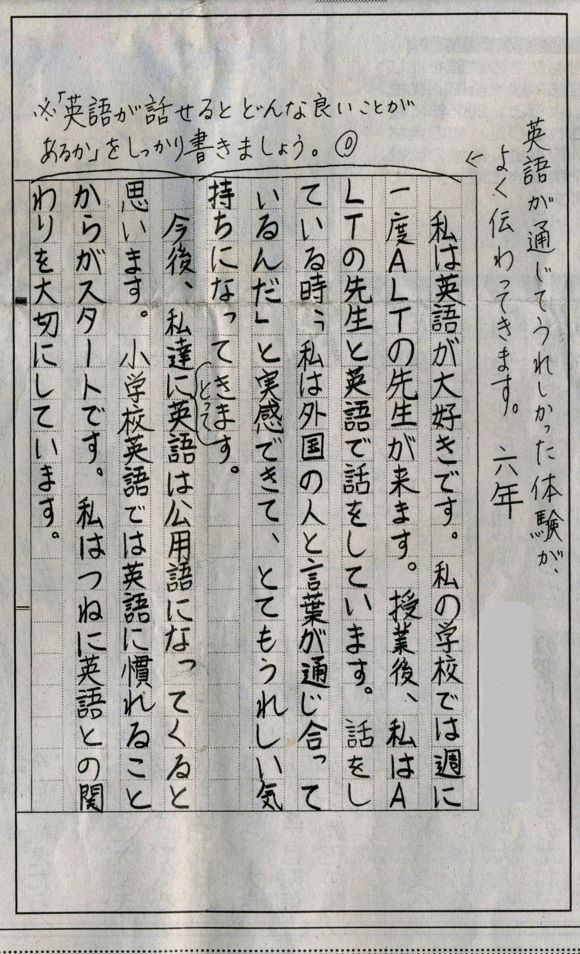 英語が通じてうれしかった体験が、
よく伝わってきます。
六年
※「英語が話せるとどんな良いことが
あるか」をしっかり書きましょう。
私は英語が大好きです。私の学校では週に
一度ALTの先生が来ます。授業後、私はA
LTの先生と英語で話をしています。話をし
ている時、「私は外国の人と言葉が通じ合って
いるんだ」と実感できて、とてもうれしい気
持ちになってきます。
とって
今後、私達に英語は公用語になってくると
思います。小学校英語では英語に慣れること
からがスタートです。私はつねに英語との関
わりを大切にしています。